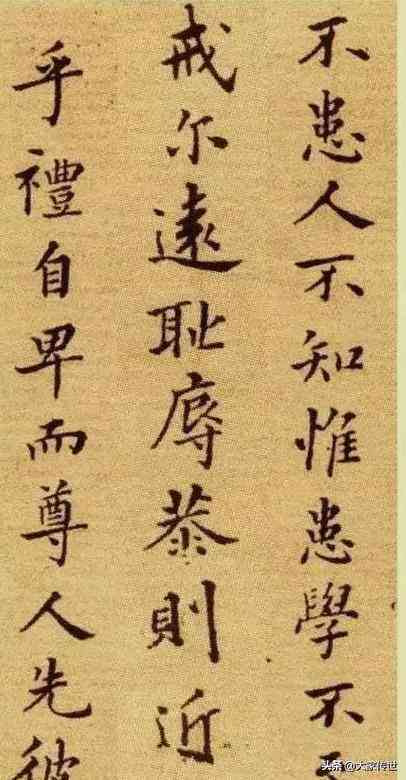 不患人不知惟患學不
戒尔遠恥辱恭則近
乎禮自卑而尊人先彼
头条@大家传世